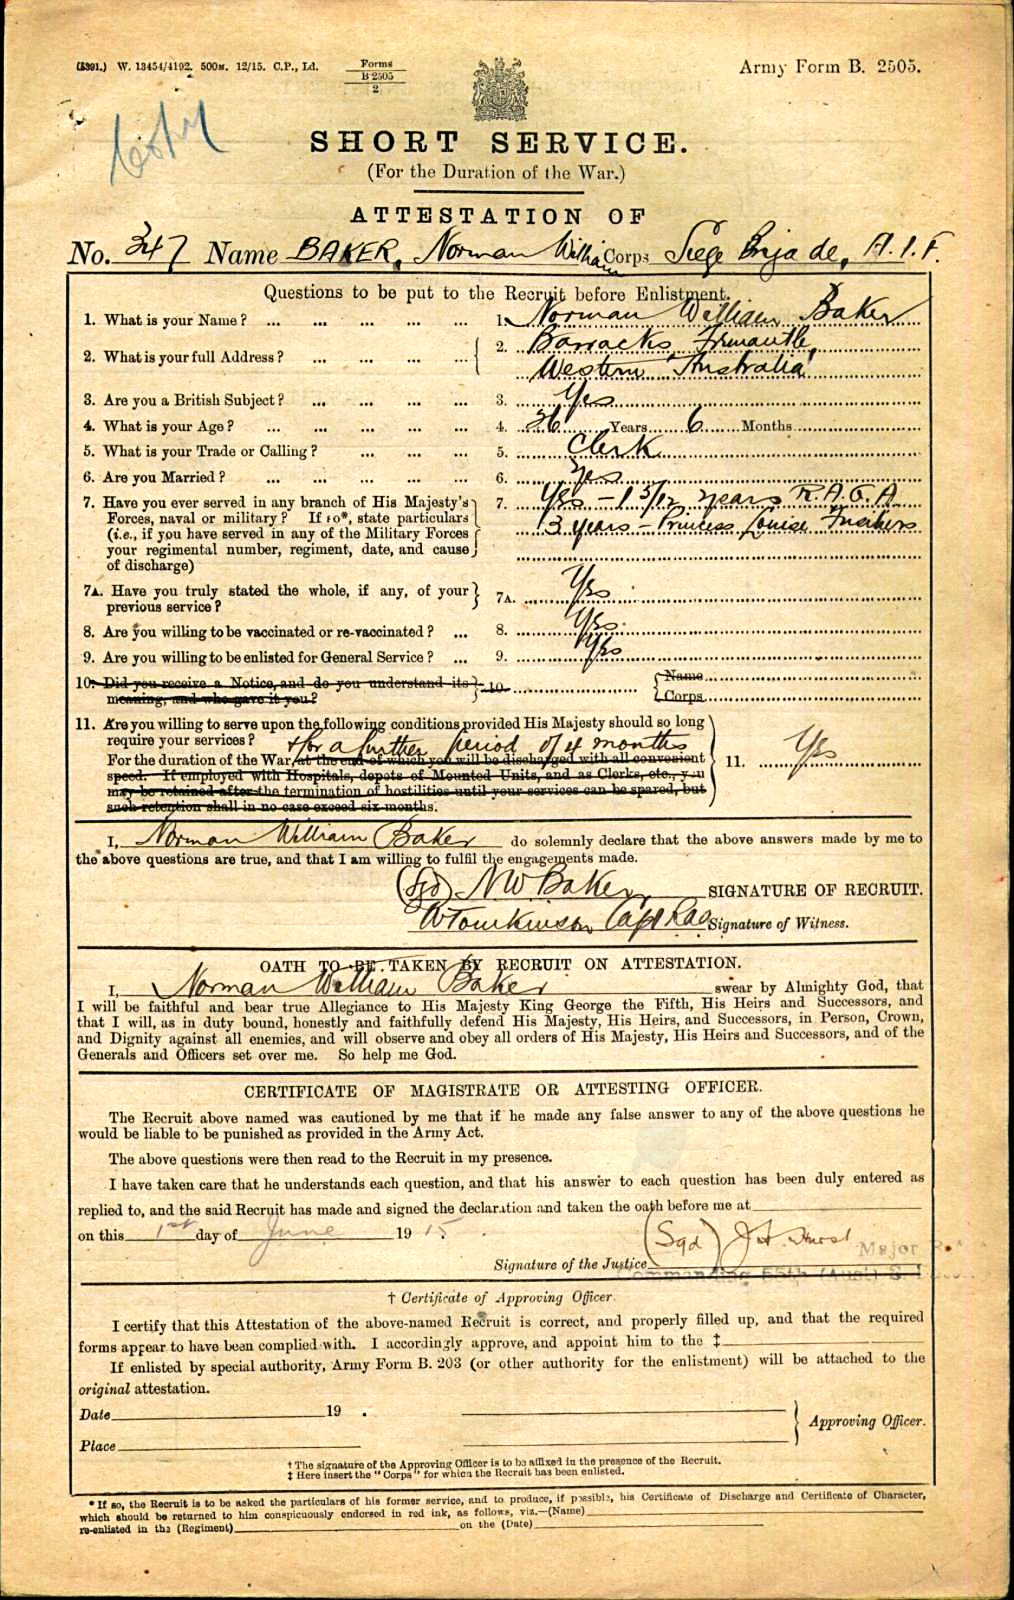 (5391.) W. 13454/4192. 500M. 12/15. C.P., Ld. Forms B 2505 2 Army Form B. 2505.
Copy
SHORT SERVICE.
(For the Duration of the War.)
ATTESTATION OF
No. 347 Name BAKER, Norman William Corps Siege Brigade, A.I.F.
Questions to be put to the Recruit before Enlistment.
1. What is your Name? ... ... ... ... ... 1. Norman William Baker
2. What is your full Address? ... ... ... ... 2. Barracks, Fremantle,
Western Australia
3. Are you a British Subject? ... ... ... ... 3. Yes
4. What is your Age? ... ... ... ... ... 4. 26 Years 6 Months
5. What is your Trade or Calling? ... ... ... 5. Clerk
6. Are you Married? ... ... ... ... ... 6. Yes
7. Have you ever served in any branch of His Majesty's 7. Yes – 1 5/12 years R.A.G.A
Forces, naval or military? If so*, state particulars 3 years – Princess Louise Fusiliers
(i.e., if you have served in any of the Military Forces
your regimental number, regiment, date, and cause
of discharge)
7A. Have you truly stated the whole, if any, of your 7A. Yes
previous service?
8. Are you willing to be vaccinated or re-vaccinated? ... 8. Yes
9. Are you willing to be enlisted for General Service? ... 9. Yes
10. Did you receive a Notice, and do you understand its 10. Name
meaning, and who gave it you? Corps
11. Are you willing to serve upon the following conditions provided His Majesty should so long
require your services? & for a further period of 4 months 11. Yes
For the duration of the War, at the end of which you will be discharged with all convenient
speed. If employed with Hospitals, depots of Mounted Units, and as Clerks, etc., you
may be retained after the termination of hostilities until your services can be spared, but
such retention shall in no case exceed six months.
I, Norman William Baker do solemnly declare that the above answers made by me to
the above questions are true, and that I am willing to fulfil the engagements made.
(Sgd) N W Baker SIGNATURE OF RECRUIT.
W Tomkinson Capt Signature of Witness.
OATH TO BE TAKEN BY RECRUIT ON ATTESTATION.
I, Norman William Baker swear by Almighty God, that
I will be faithful and bear true Allegiance to His Majesty King George the Fifth, His Heirs and Successors, and
that I will, as in duty bound, honestly and faithfully defend His Majesty, His Heirs, and Successors, in Person, Crown,
and Dignity against all enemies, and will observe and obey all orders of His Majesty, His Heirs and Successors, and of the
Generals and Officers set over me. So help me God.
CERTIFICATE OF MAGISTRATE OR ATTESTING OFFICER.
The Recruit above named was cautioned by me that if he made any false answer to any of the above questions he
would be liable to be punished as provided in the Army Act.
The above questions were then read to the Recruit in my presence.
I have taken care that he understands each question, and that his answer to each question has been duly entered as
replied to, and the said Recruit has made and signed the declaration and taken the oath before me at
on this 1st day of June 1915.
Signature of the Justice (Sgd) J.H. Hurst Major
Commanding 55th (Aust)
† Certificate of Approving Officer.
I certify that this Attestation of the above-named Recruit is correct, and properly filled up, and that the required
forms appear to have been complied with. I accordingly approve, and appoint him to the ‡
If enlisted by special authority, Army Form B. 203 (or other authority for the enlistment) will be attached to the
original attestation.
Date 19 .
Approving Officer.
Place
† The signature of the Approving Officer is to be affixed in the presence of the Recruit.
‡ Here insert the "Corps" for which the Recruit has been enlisted.
* If so, the Recruit is to be asked the particulars of his former service, and to produce, if possible, his Certificate of Discharge and Certificate of Character,
which should be returned to him conspicuously endorsed in red ink, as follows, viz.—(Name)
re-enlisted in the (Regiment) on the (Date)